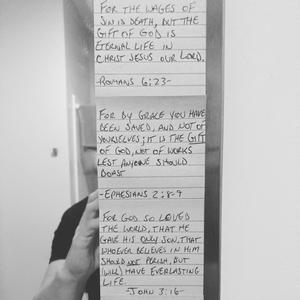 FOR THE WAGES OF
SIN IS DEATH, BUT THE
GIFT OF GOD IS
ETERNAL LIFE IN
CHRIST JESUS OUR LORD.
-ROMANS 6:23-
FOR BY GRACE YOU HAVE
BEEN SAVED, AND NOT OF
YOURSELVES; IT IS THE GIFT
OF GOD, NOT OF WORKS
LEST ANYONE SHOULD
BOAST
-EPHESIANS 2:8-9
FOR GOD SO LOVED
THE WORLD, THAT HE
GAVE HIS ONLY SON, THAT
WHOEVER BELIEVES IN HIM
SHOULD NOT PERISH, BUT
(WILL) HAVE EVERLASTING
LIFE.
-JOHN 3:16-